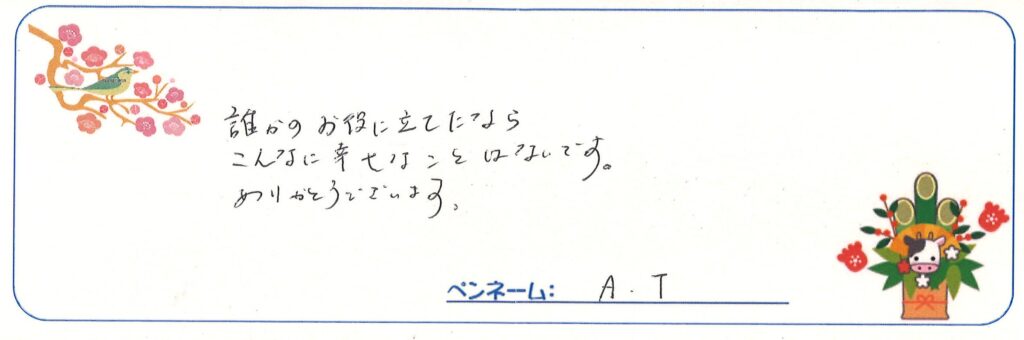 誰かのお役に立てたなら
こんなに幸せなことはないです。
ありがとうございます。
ペンネーム: A.T